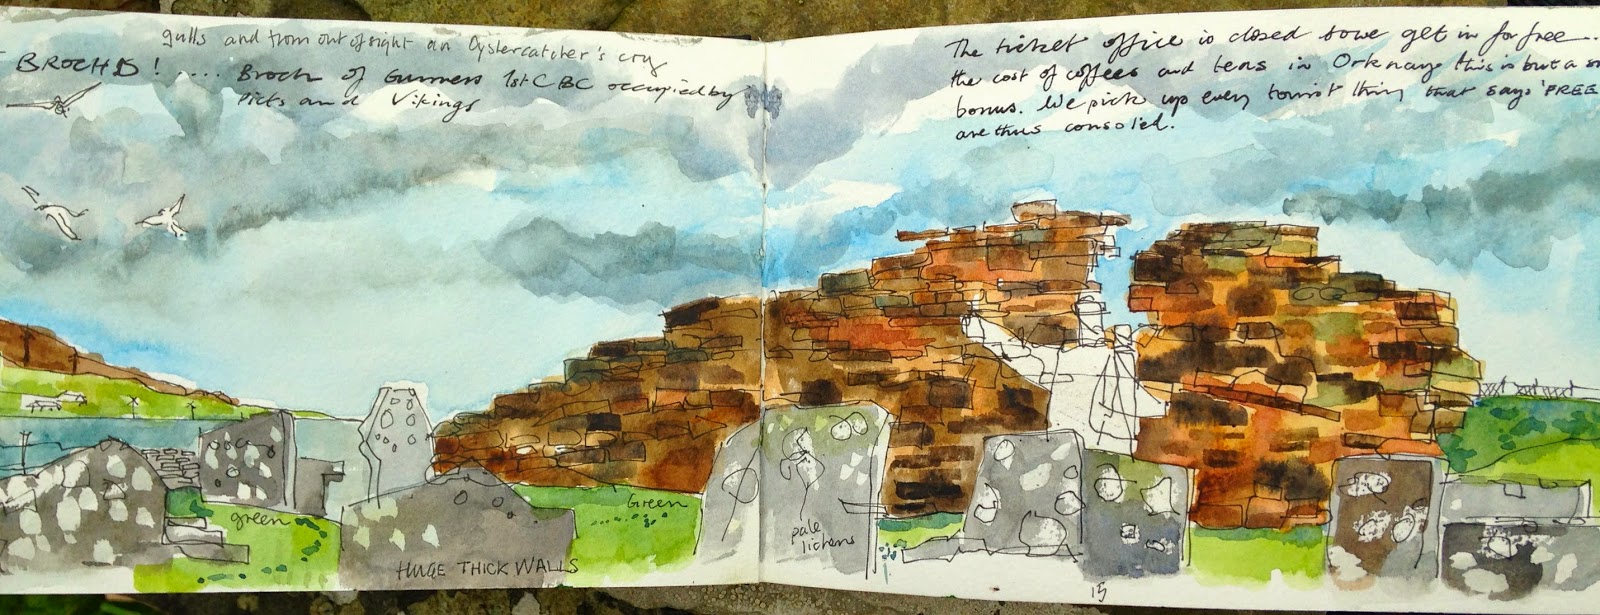 gulls and from out of sight an Oystercatcher's cry
BROCHS! .... Broch of Gurness 1st C BC occupied by
Picts and Vikings
The ticket office is closed so we get in for free...
the cost of coffees and teas in Orkney this is but a
bonus. We pick up every tourist thing that says 'FREE
are thus consoled.
green
Green
pale
lichens
HUGE THICK WALLS
15